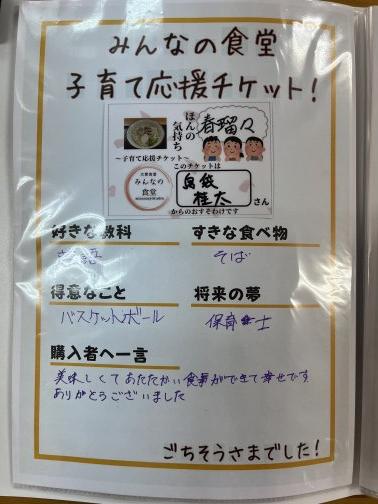 みんなの食堂
子育て応援チケット!
ほんの
気持ち
春瑠々
～子育て応援チケット～
このチケットは
みんなの
食堂
桂太
さん
からのおすそわけです
好きな教科
すきな食べ物
そば
得意なこと
将来の夢
バスケットボール
保育士
購入者へ一言
美味しくてあたたかい食事ができて幸せです
ありがとうございました
ごちそうさまでした!